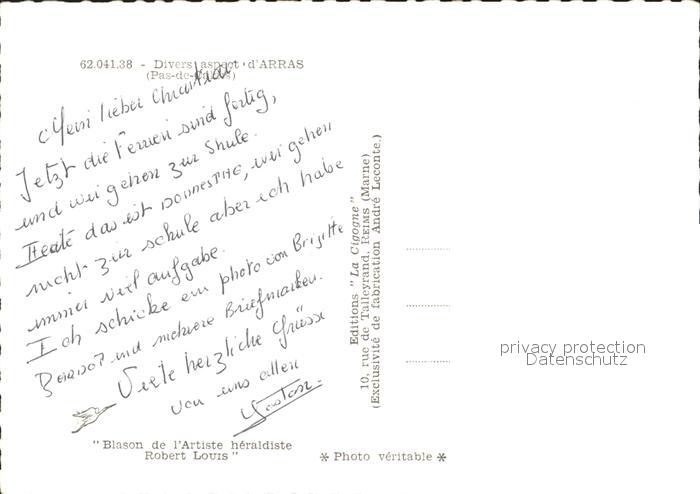 62.041.38 - Divers aspect d'ARRAS
(Pas-de-Calais)
Mein lieber Christian
Jetzt die Ferien sind fertig,
und wei gehen zur Shule.
Heate das ist DONNESTAG, wei gehen
nicht zur schule aber ich habe
immer viel aufgabe.
Ich schicke ein photo von Brigitte
BARDOT und mehrere Briefmarken.
Viele herzliche Grüsse
von uns allen
Gaston.
"Blason de l'Artiste héraldiste
Robert LOUIS"
Editions "La Cigogne"
10, rue de Talleyrand, REIMS (Marne)
(Exclusivité de fabrication André Leconte.)
* Photo véritable *
privacy protection
Datenschutz